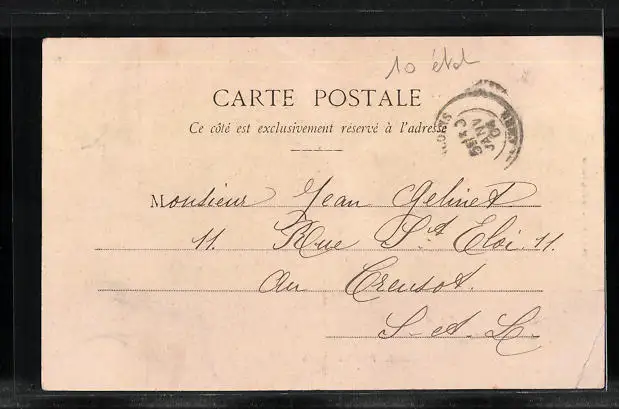 10 état
CARTE POSTALE
Ce côté est exclusivement reservé à l'adresse
JANV
04
Monsieur Jean Gelinet
11. Rue St Eloi. 11.
Au Creusot.
S. et L.